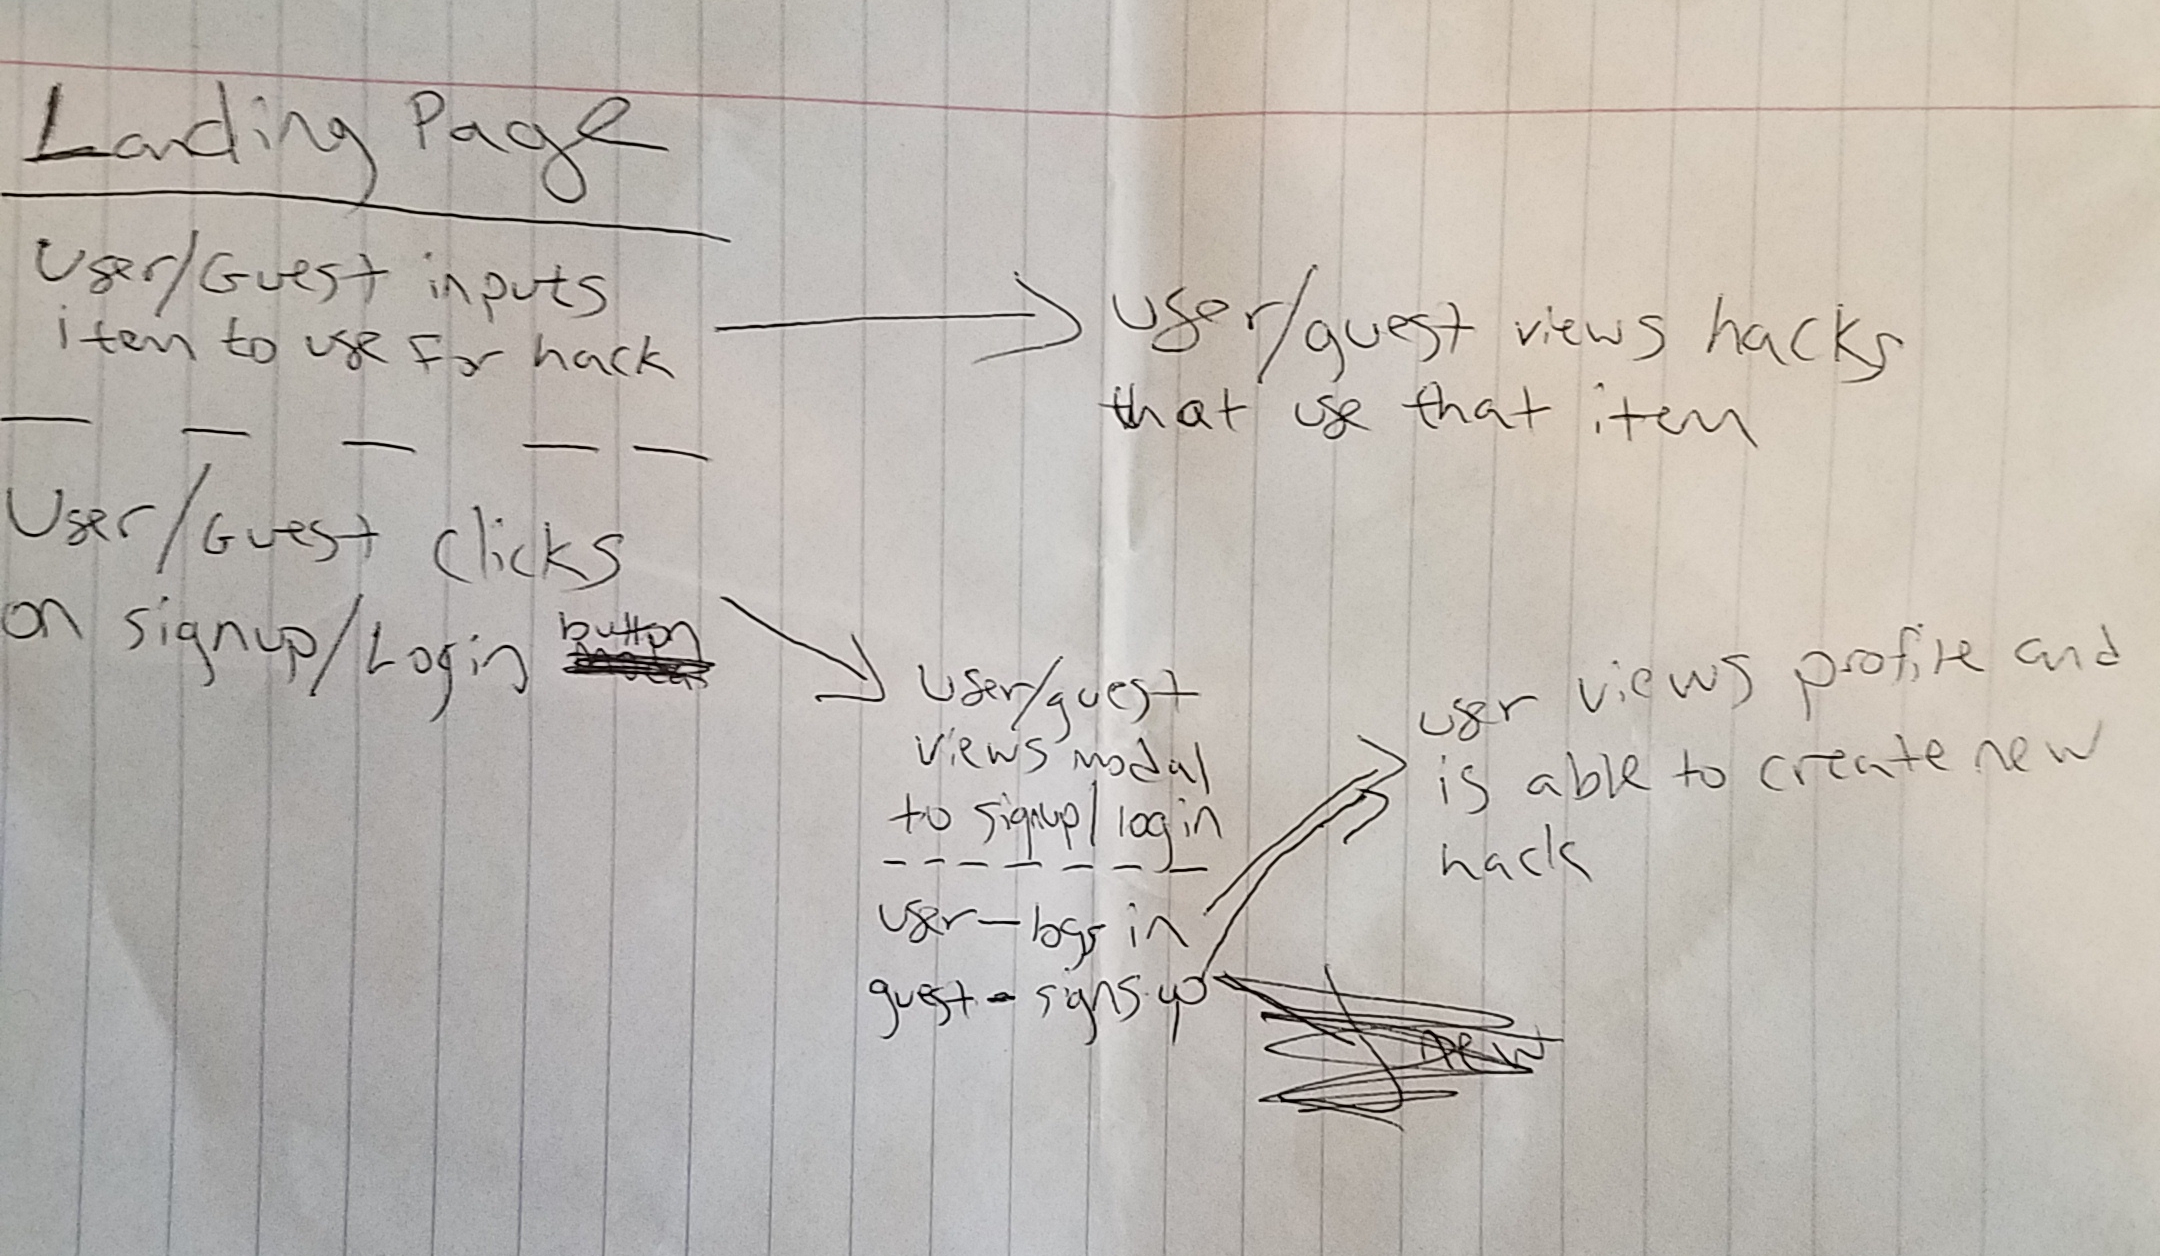 Landing Page
User/Guest inputs
item to use for hack
user/guest views hacks
that use that item
User/Guest clicks
on signup/Login button
user/guest
views modal
to signup/login
user - logs in
guest - signs up
user views profile and
is able to create new
hack
new